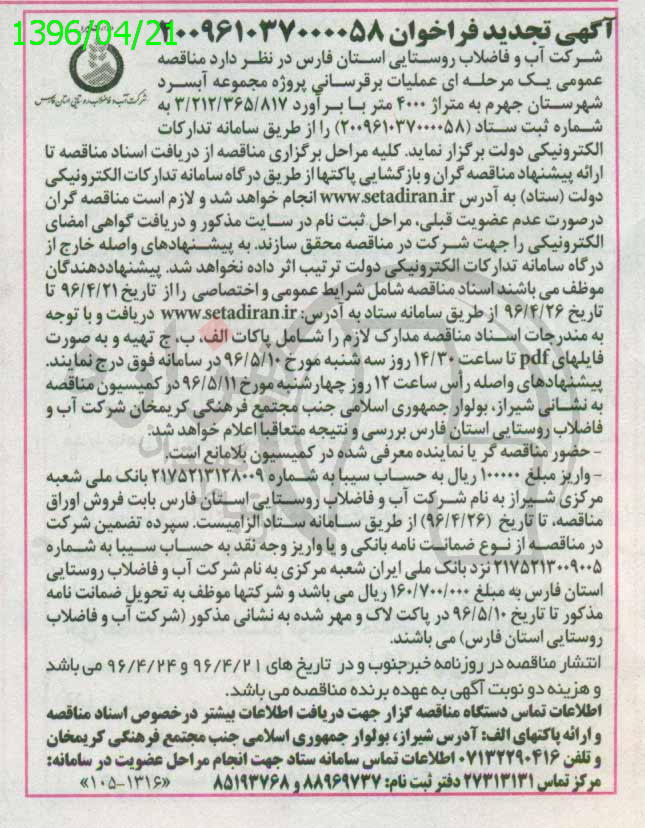 1396/04/21
آگهی تجدید فراخوان ۲۰۰۹۶۱۰۳۷۰۰۰۰۰۵۸
شرکت آب و فاضلاب روستایی استان فارس
شرکت آب و فاضلاب روستایی استان فارس در نظر دارد مناقصه
عمومی یک مرحله ای عملیات برقرسانی پروژه مجموعه آبسرد
شهرستان جهرم به متراژ ۴۰۰۰ متر با برآورد ۳/۲۱۲/۳۶۵/۸۱۷ به
شماره ثبت ستاد (۲۰۰۹۶۱۰۳۷۰۰۰۰۰۵۸) را از طریق سامانه تدارکات
الکترونیکی دولت برگزار نماید. کلیه مراحل برگزاری مناقصه از دریافت اسناد مناقصه تا
ارائه پیشنهاد مناقصه گران و بازگشایی پاکتها از طریق درگاه سامانه تدارکات الکترونیکی
دولت (ستاد) به آدرس www.setadiran.ir انجام خواهد شد و لازم است مناقصه گران
درصورت عدم عضویت قبلی، مراحل ثبت نام در سایت مذکور و دریافت گواهی امضای
الکترونیکی را جهت شرکت در مناقصه محقق سازند. به پیشنهادهای واصله خارج از
درگاه سامانه تدارکات الکترونیکی دولت ترتیب اثر داده نخواهد شد. پیشنهاددهندگان
موظف می باشند اسناد مناقصه شامل شرایط عمومی و اختصاصی را از تاریخ ۹۶/۴/۲۱ تا
تاریخ ۹۶/۴/۲۶ از طریق سامانه ستاد به آدرس: www.setadiran.ir دریافت و با توجه
به مندرجات اسناد مناقصه مدارک لازم را شامل پاکات الف، ب، ج تهیه و به صورت
فایلهای pdf تا ساعت ۱۴/۳۰ روز سه شنبه مورخ ۹۶/۵/۱۰ در سامانه فوق درج نمایند.
پیشنهادهای واصله رأس ساعت ۱۲ روز چهارشنبه مورخ ۹۶/۵/۱۱ در کمیسیون مناقصه
به نشانی شیراز، بولوار جمهوری اسلامی جنب مجتمع فرهنگی کریمخان شرکت آب و
فاضلاب روستایی استان فارس بررسی و نتیجه متعاقبا اعلام خواهد شد.
- حضور مناقصه گر یا نماینده معرفی شده در کمیسیون بلامانع است.
- واریز مبلغ ۱۰۰۰۰۰ ریال به حساب سیبا به شماره ۲۱۷۵۲۱۳۱۲۸۰۰۹ بانک ملی شعبه
مرکزی شیراز به نام شرکت آب و فاضلاب روستایی استان فارس بابت فروش اوراق
مناقصه، تا تاریخ (۹۶/۴/۲۶) از طریق سامانه ستاد الزامیست. سپرده تضمین شرکت
در مناقصه از نوع ضمانت نامه بانکی و یا واریز وجه نقد به حساب سیبا به شماره
۲۱۷۵۲۱۳۰۰۹۰۰۵ نزد بانک ملی ایران شعبه مرکزی به نام شرکت آب و فاضلاب روستایی
استان فارس به مبلغ ۱۶۰/۷۰۰/۰۰۰ ریال می باشد و شرکتها موظف به تحویل ضمانت نامه
مذکور تا تاریخ ۹۶/۵/۱۰ در پاکت لاک و مهر شده به نشانی مذکور (شرکت آب و فاضلاب
روستایی استان فارس) می باشند.
انتشار مناقصه در روزنامه خبرجنوب و در تاریخ های ۹۶/۴/۲۱ و ۹۶/۴/۲۴ می باشد
و هزینه دو نوبت آگهی به عهده برنده مناقصه می باشد.
اطلاعات تماس دستگاه مناقصه گزار جهت دریافت اطلاعات بیشتر درخصوص اسناد مناقصه
و ارائه پاکتهای الف: آدرس شیراز، بولوار جمهوری اسلامی جنب مجتمع فرهنگی کریمخان
و تلفن ۰۷۱۳۲۲۹۰۴۱۶ اطلاعات تماس سامانه ستاد جهت انجام مراحل عضویت در سامانه:
مرکز تماس ۲۷۳۱۳۱۳۱ دفتر ثبت نام: ۸۸۹۶۹۷۳۷ و ۸۵۱۹۳۷۶۸ «۱۰۵-۱۳۱۶»